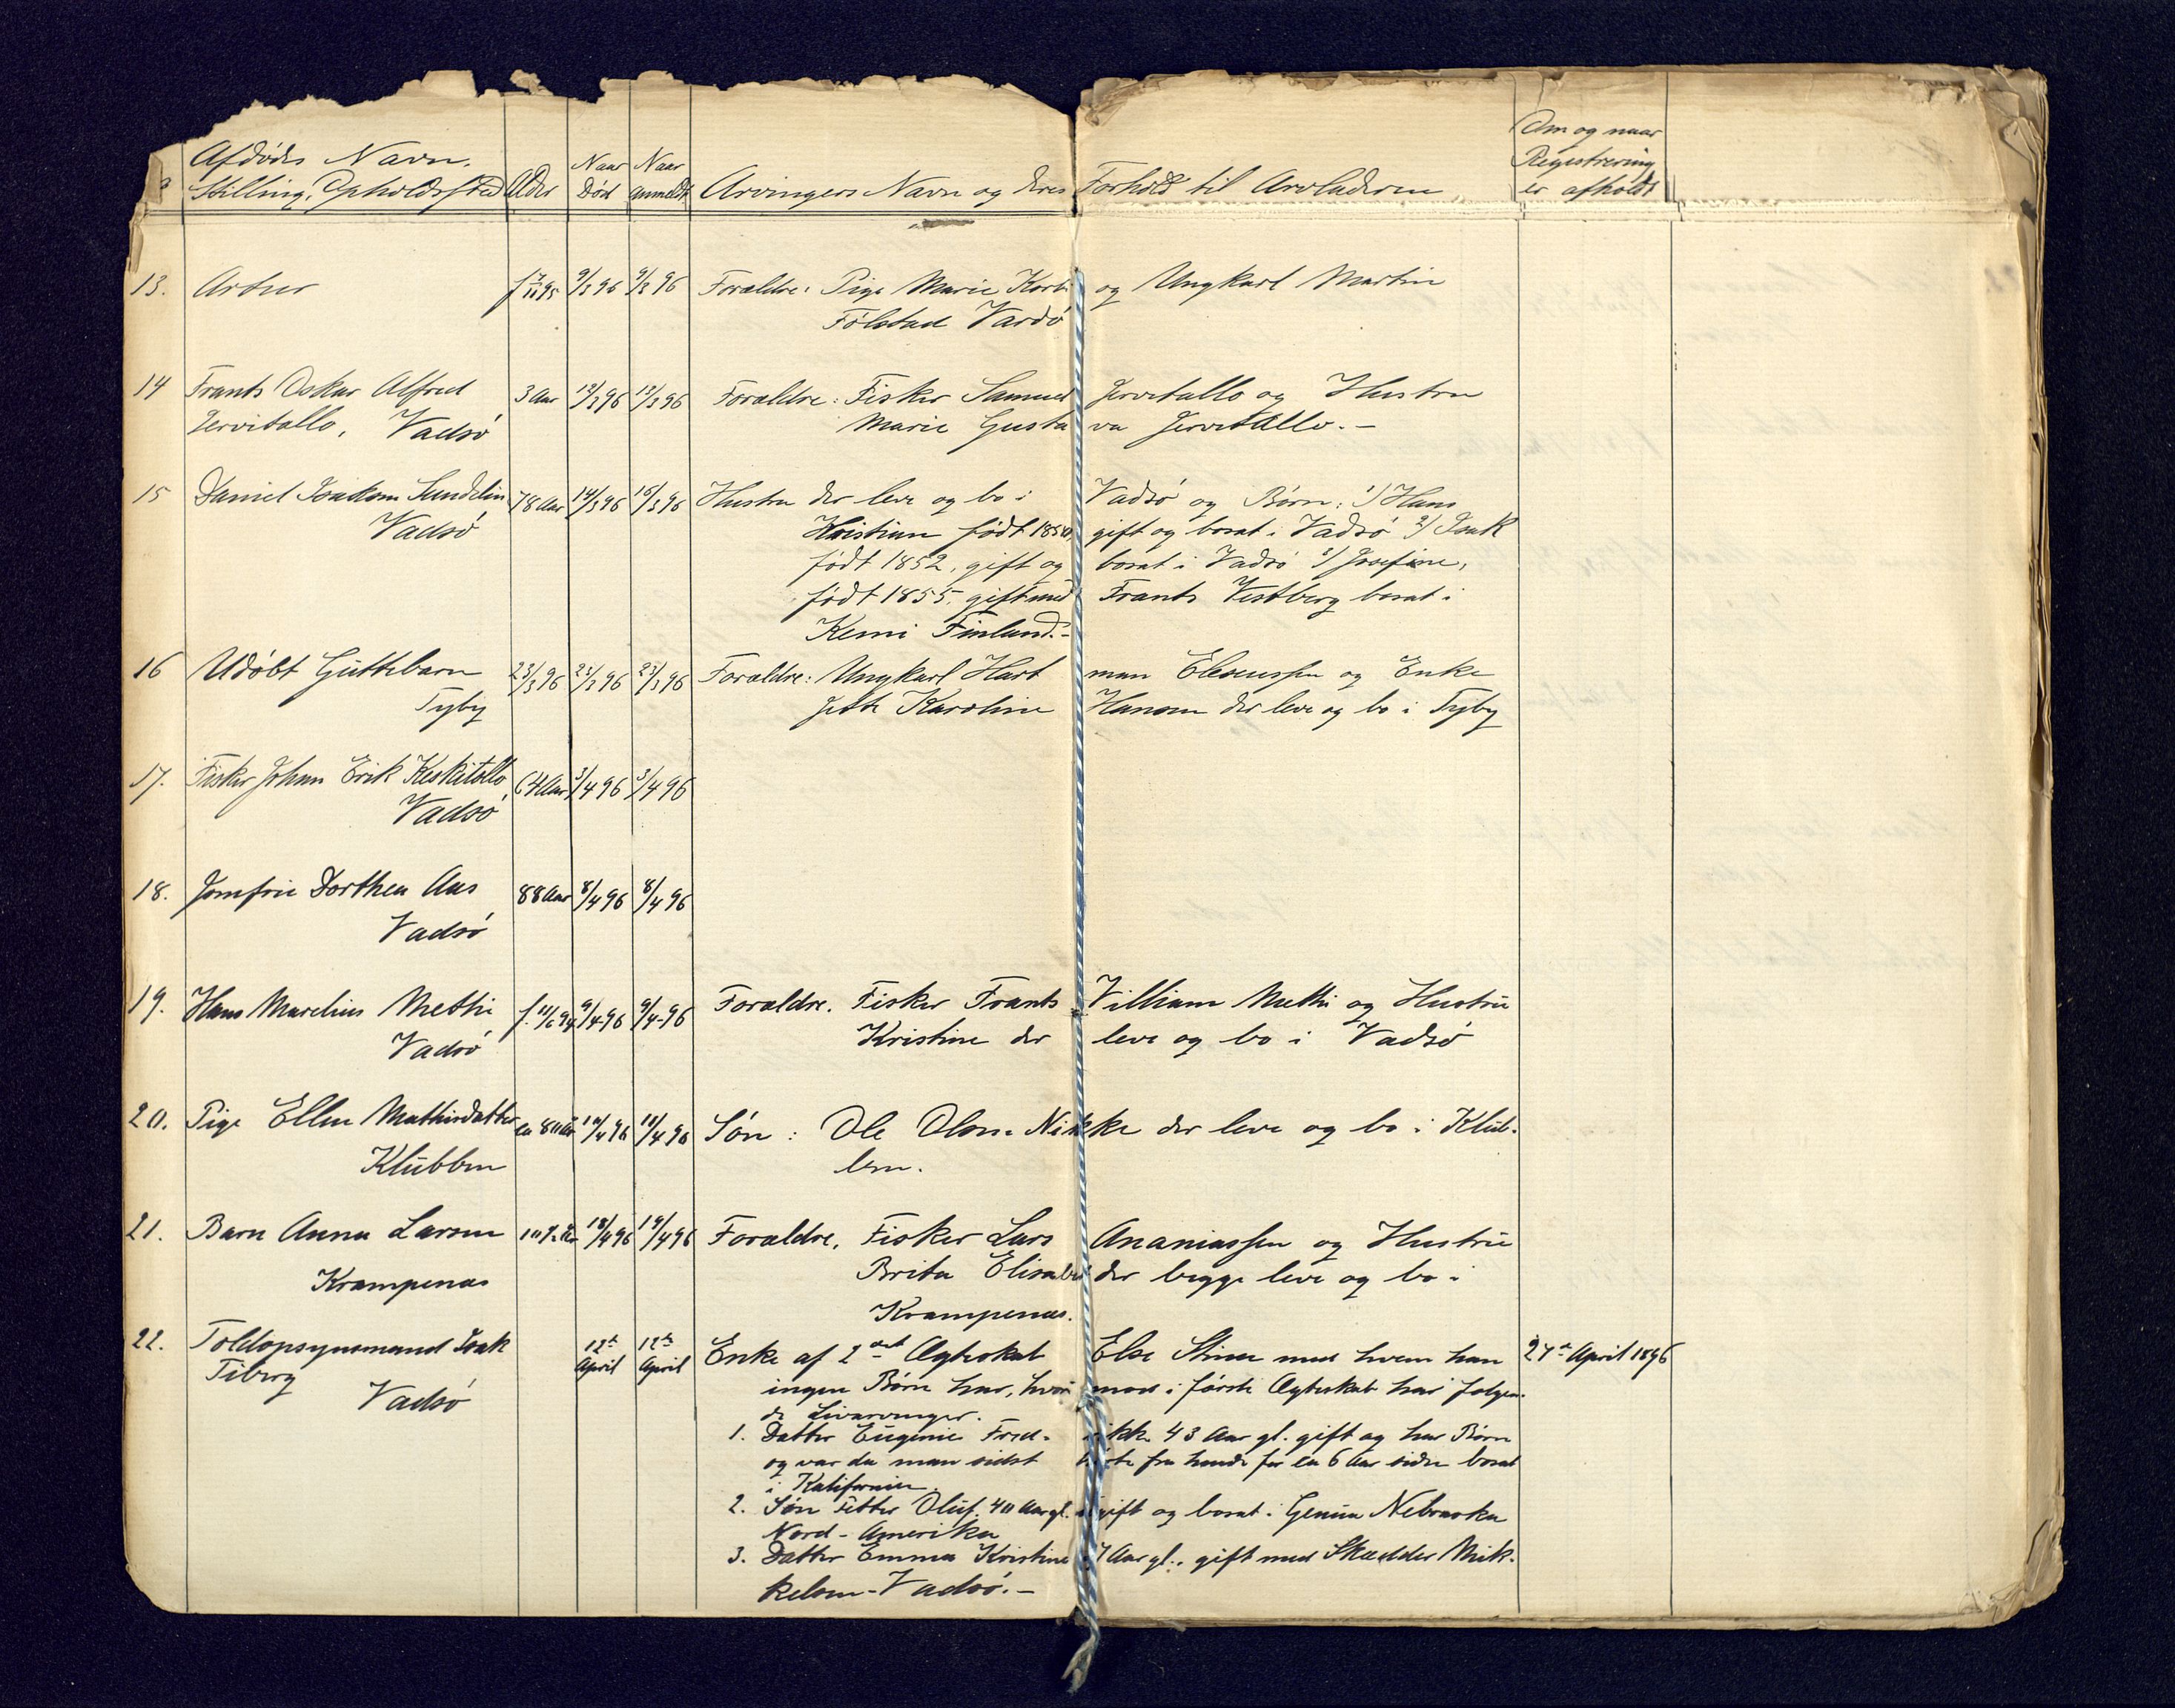 Afdødes Navn. Stilling, Opholdssted
Alder
Naar Død
Naar anmeldt
Arvingers Navn og deres Forhold til Arveladeren
Om og naar Registrering er afholdt
13. Artur f 7/11 95 9/3 96 9/3 96 Forældre: Pige Marie og Ungkarl Martin
Følstad Vardø
14 Frants Oskar Alfred 3 Aar 12/3 96 12/3 96 Forældre: Fisker Samuel Jervitallo og Hustru
Jervitallo, Vadsø Marie Gustava Jervitallo.–
15 Daniel Isaksen Sundelin 78 Aar 14/3 96 15/3 96 Hustru der leve og bo i Vadsø og Børn: 1) Hans
Vadsø Kristian født 1850, gift og bosat i Vadsø 2) Isak
født 1852, gift og bosat i Vadsø 3) Josefine,
født 1855, gift med Frants Vestberg bosat i
Kemi Finland.–
16 Udøbt Guttebarn 23/3 96 23/3 96 23/3 96 Forældre: Ungkarl Hartman Eleseussen og Enke
Tyby Jette Karoline Hansen der leve og bo i Tyby
17. Fisker Johan Erik Keskitallo 64 Aar 3/4 96 3/4 96
Vadsø
18. Jomfru Dorthea Aas 88 Aar 8/4 96 8/4 96
Vadsø
19. Hans Marelius Metti f. 11/6 94 9/4 96 9/4 96 Forældre. Fisker Frants Villiam Metti og Hustru
Vadsø Kristine der leve og bo i Vadsø
20. Pige Ellen Mathisdatter ca 80 Aar 10/4 96 10/4 96 Søn: Ole Olsen Nikke der leve og bo i Klub-
Klubben ben.
21. Barn Anna Larsen 10 1/2 Aar 18/4 96 19/4 96 Forældre, Fisker Lars Ananiassen og Hustru
Krampenæs Brita Elisabet der begge leve og bo i
Krampenæs.
22. Toldopsynsmand Isak 12te April 12te April Enke af 2det Ægteskab Else Stina med hvem han 27de April 1896
Tiberg ingen Børn har, hvorimod i første Ægteskab har følgen-
Vadsø de Livsarvinger.
1. Datter Eugenie Fredrikke 43 Aar gl. gift og har Børn
og var da man sidst hørte fra hende for ca 6 Aar siden bosat
i Kalifornien.
2. Søn Petter Oluf, 40 Aar gl. ugift og bosat i Genua Nebraska
Nord-Amerika
3. Datter Emma Kristine Aar gl., gift med Skrædder Mik-
kelsen-Vadsø.–